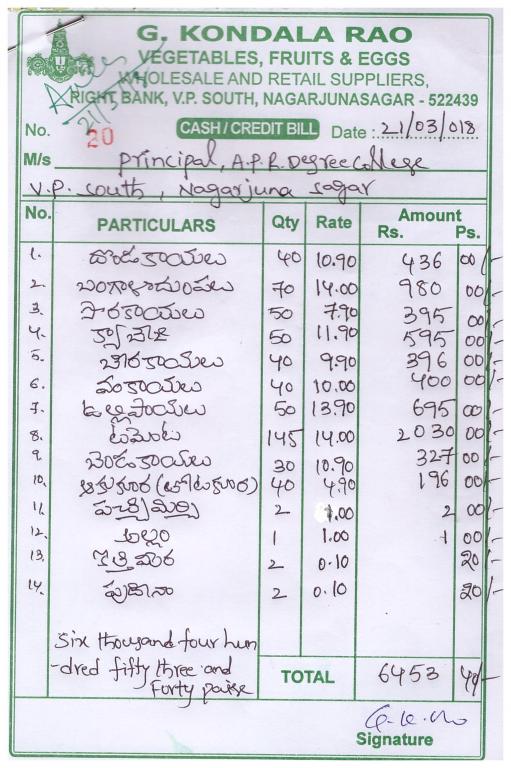 G. KONDALA RAO
VEGETABLES, FRUITS & EGGS
WHOLESALE AND RETAIL SUPPLIERS,
RIGHT BANK, V.P. SOUTH, NAGARJUNASAGAR - 522439
No. 20 CASH / CREDIT BILL Date : 21/03/018
M/s Principal, A.P.R. Degree College
V.P. South, Nagarjuna Sagar
No. PARTICULARS Qty Rate Amount Rs. Ps.
1. దొండకాయలు 40 10.90 436 00/-
2. బంగాళాదుంపలు 70 14.00 980 00/-
3. సొరకాయలు 50 7.90 395 00/-
4. క్యాబేజి 50 11.90 595 00/-
5. బీరకాయలు 40 9.90 396 00/-
6. వంకాయలు 40 10.00 400 00/-
7. ఉల్లిపాయలు 50 13.90 695 00/-
8. టమోటా 145 14.00 2030 00/-
9. బెండకాయలు 30 10.90 327 00/-
10. ఆకుకూర (తోటకూర) 40 4.90 196 00/-
11. పచ్చిమిర్చి 2 1.00 2 00/-
12. అల్లం 1 1.00 1 00/-
13. కొత్తిమీర 2 0.10 20/-
14. పుదీనా 2 0.10 20/-
Six thousand four hun
-dred fifty three and
Forty paise
TOTAL 6453 40/-
Signature